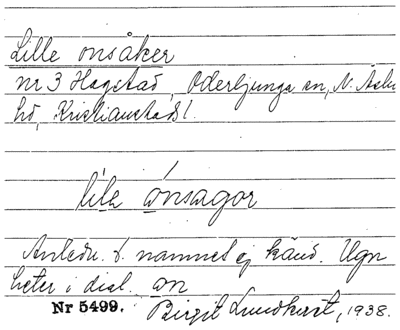 Lille onsåker
nr 3 Hagstad, Oderljunga sn, N. Åsbo
hd, Kristianstads l.
lilə ónsagor
Anledn. t. namnet ej känd. Ugn
heter i dial. on
Nr 5499. Birgit Lundkvist, 1938.